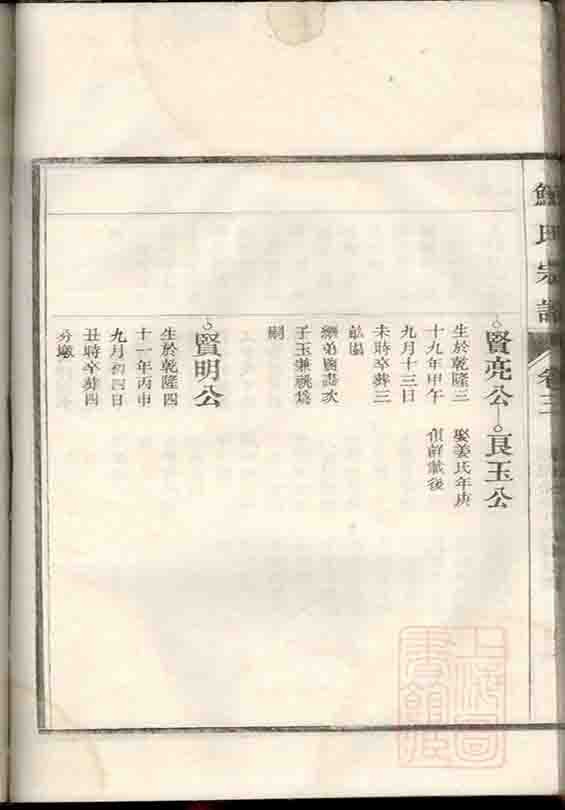 氏宗譜
卷三
賢亮公
良玉公
生於乾隆三
十九年甲午
九月十三日
未時卒葬三
繼弟
次
子玉兼祧為
嗣
娶姜氏年庚
前載後
賢明公
生於乾隆四
十一年丙申
九月初四日
丑時卒葬四
分墩
上海圖
書館藏